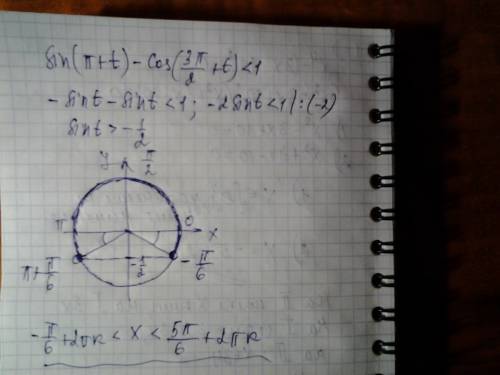 sin(π+t) - cos(3π/2 + t) < 1
- sin t - sin t < 1 ; -2 sin t < 1 | : (-2)
sin t > - 1/2
y π/2
π 0 x
π + π/6 - 1/2 - π/6
- π/6 + 2πk < x < 5π/6 + 2πk